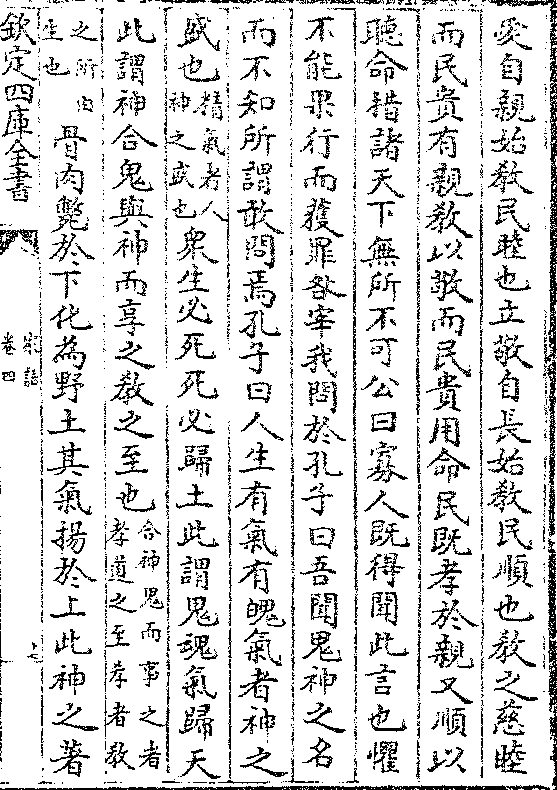 愛自親始教民睦也立敬自長始教民順也教之慈睦
而民貴有親教以敬而民貴用命民既孝於親又順以
聽命措諸天下無所不可公曰寡人既得聞此言也懼
不能果行而獲罪咎宰我問於孔子曰吾聞鬼神之名
而不知所謂敢問焉孔子曰人生有氣有魄氣者神之
盛也精氣者人神之盛也衆生必死死必歸土此謂鬼魂氣歸天
此謂神合鬼與神而享之教之至也合神鬼而事之者孝道之至孝者教
之所由生也骨肉斃於下化為野土其氣揚於上此神之著
欽定四庫全書
家語
卷四